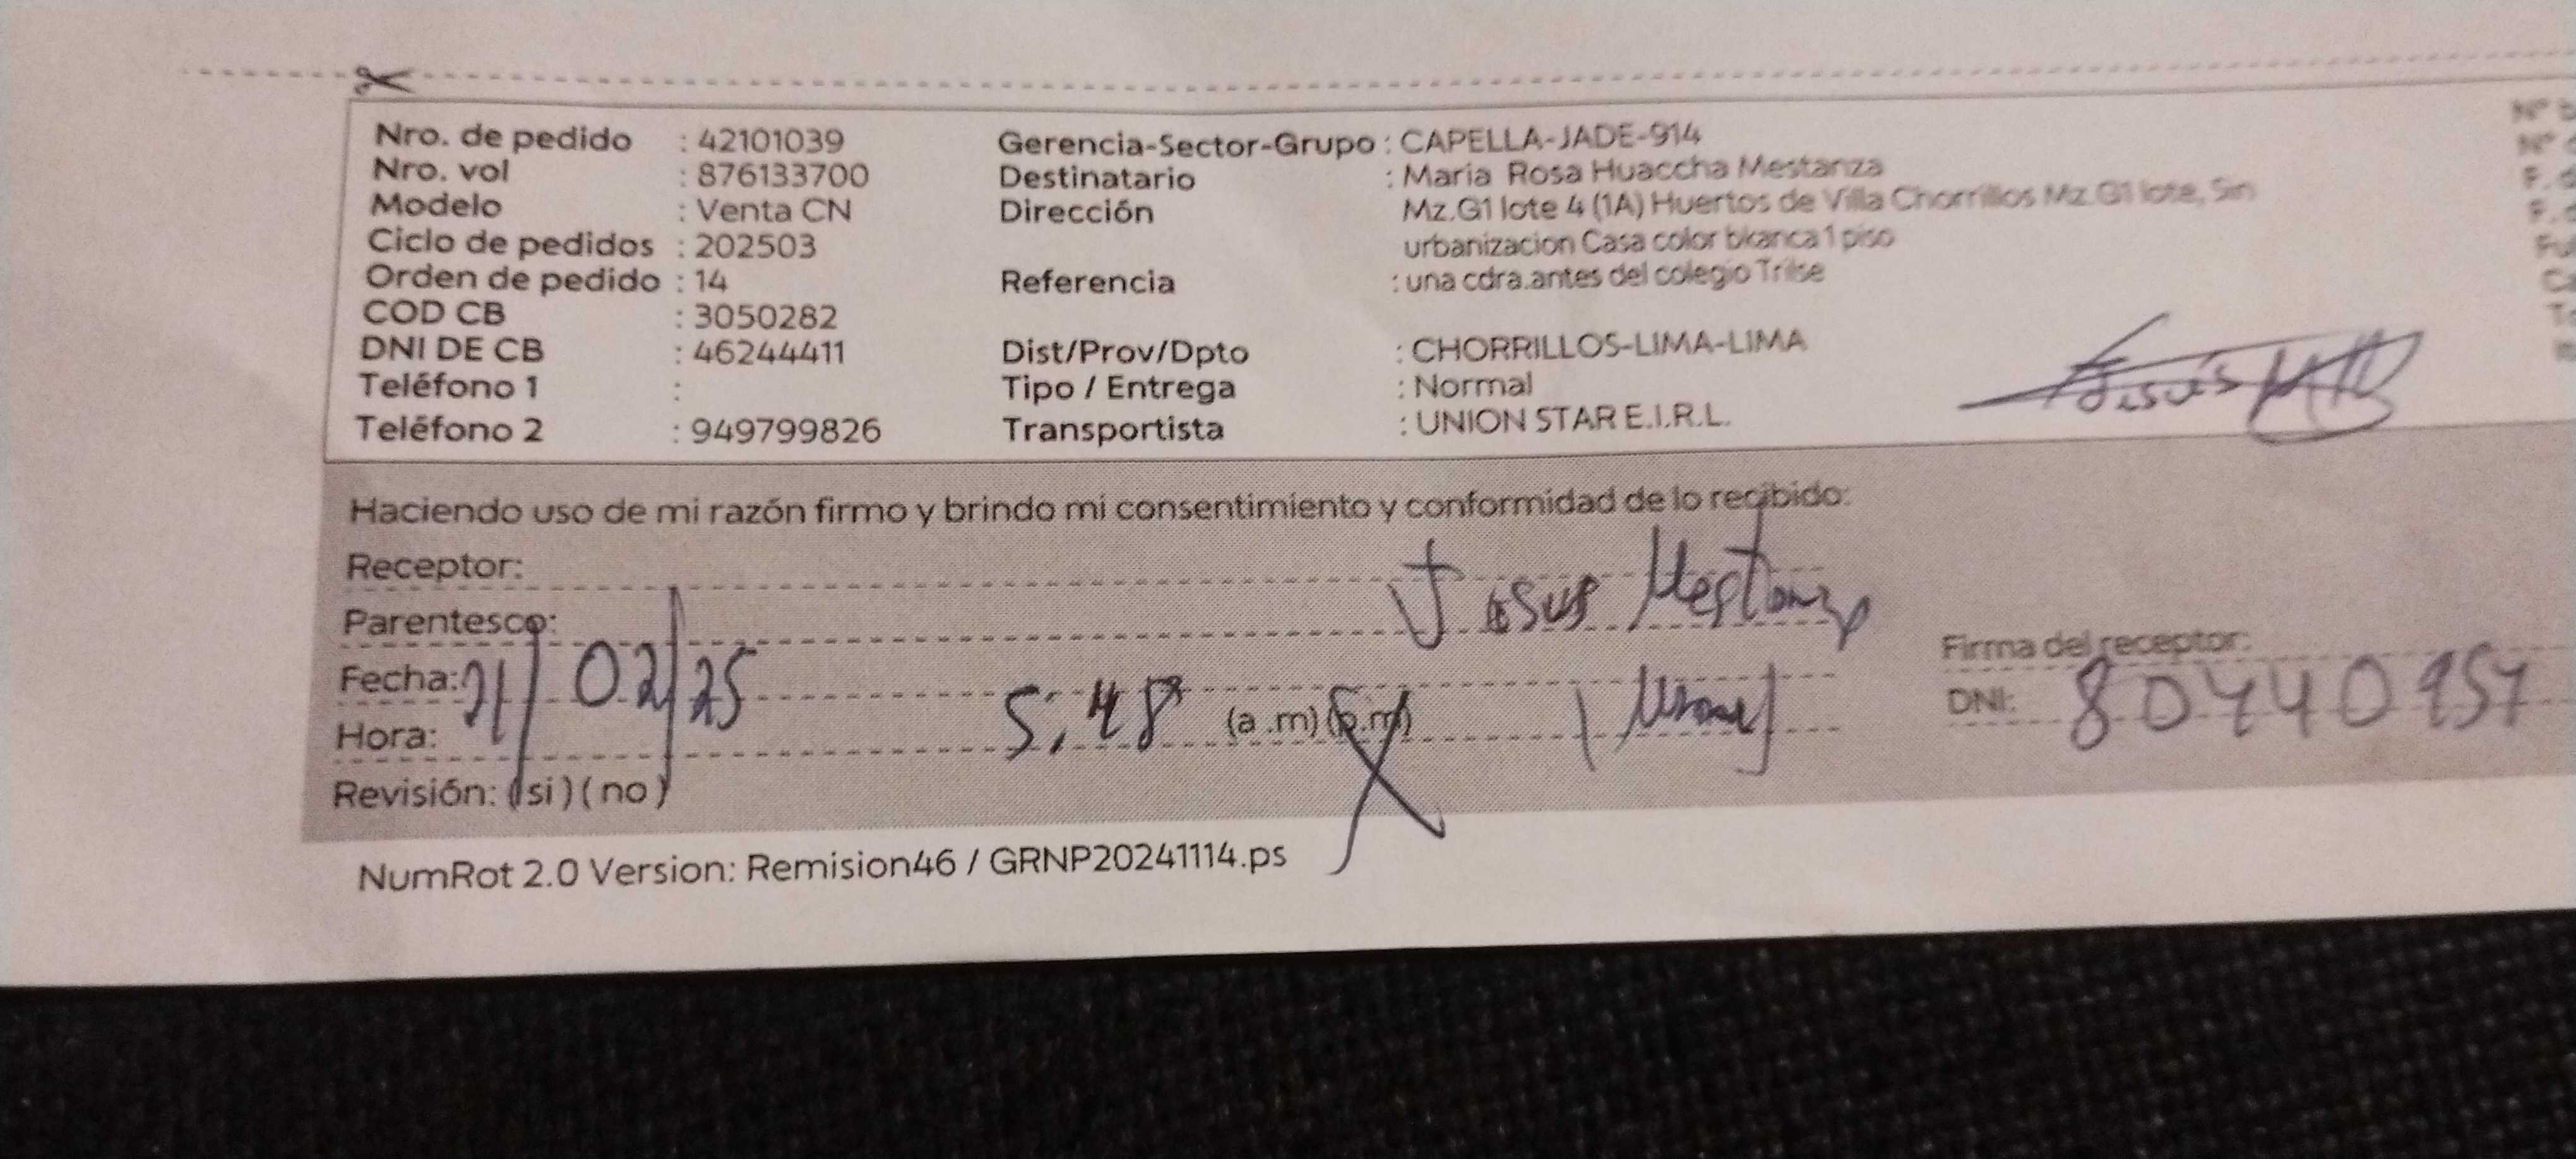 Nro. de pedido : 42101039
Nro. vol : 876133700
Modelo : Venta CN
Ciclo de pedidos : 202503
Orden de pedido : 14
COD CB : 3050282
DNI DE CB : 46244411
Teléfono 1 :
Teléfono 2 : 949799826
Gerencia-Sector-Grupo : CAPELLA-JADE-914
Destinatario : Maria Rosa Huaccha Mestanza
Dirección Mz.G1 lote 4 (1A) Huertos de Villa Chorrillos Mz.G1 lote, Sin
urbanizacion Casa color blanca 1 piso
Referencia : una cdra.antes del colegio Trilse
Dist/Prov/Dpto : CHORRILLOS-LIMA-LIMA
Tipo / Entrega : Normal
Transportista : UNION STAR E.I.R.L.
Nº
Nº
F.
F.
Jesús
Haciendo uso de mi razón firmo y brindo mi consentimiento y conformidad de lo recibido:
Receptor: Jesus Mestanza
Parentesco:
Fecha: 21/02/25
Hora: 5:48 (a.m) (p.m)
Revisión: (si) (no)
Firma del receptor:
DNI: 80440957
NumRot 2.0 Version: Remision46 / GRNP20241114.ps